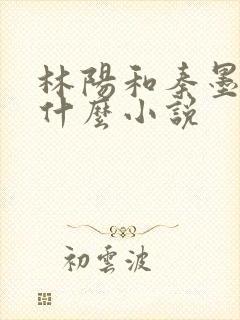 林陽和秦墨
什麼小說
初雲波